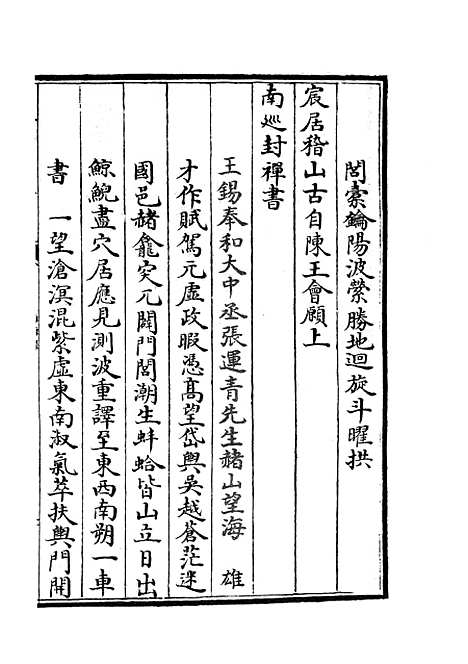 閭橐鑰陽波縈勝地迴旋斗曜拱
宸居稽山古自陳王會願上
南廵封禪書
王錫奉和大中丞張運青先生赭山望海　雄
才作賦駕元虛政暇憑髙望岱輿吳越蒼茫迷
國邑赭龕突兀闢門閭潮生蚌蛤皆山立日出
鯨鯢盡穴居應見測波重譯至東西南朔一車
書　一望滄溟混紫虛東南淑氣萃扶輿門開